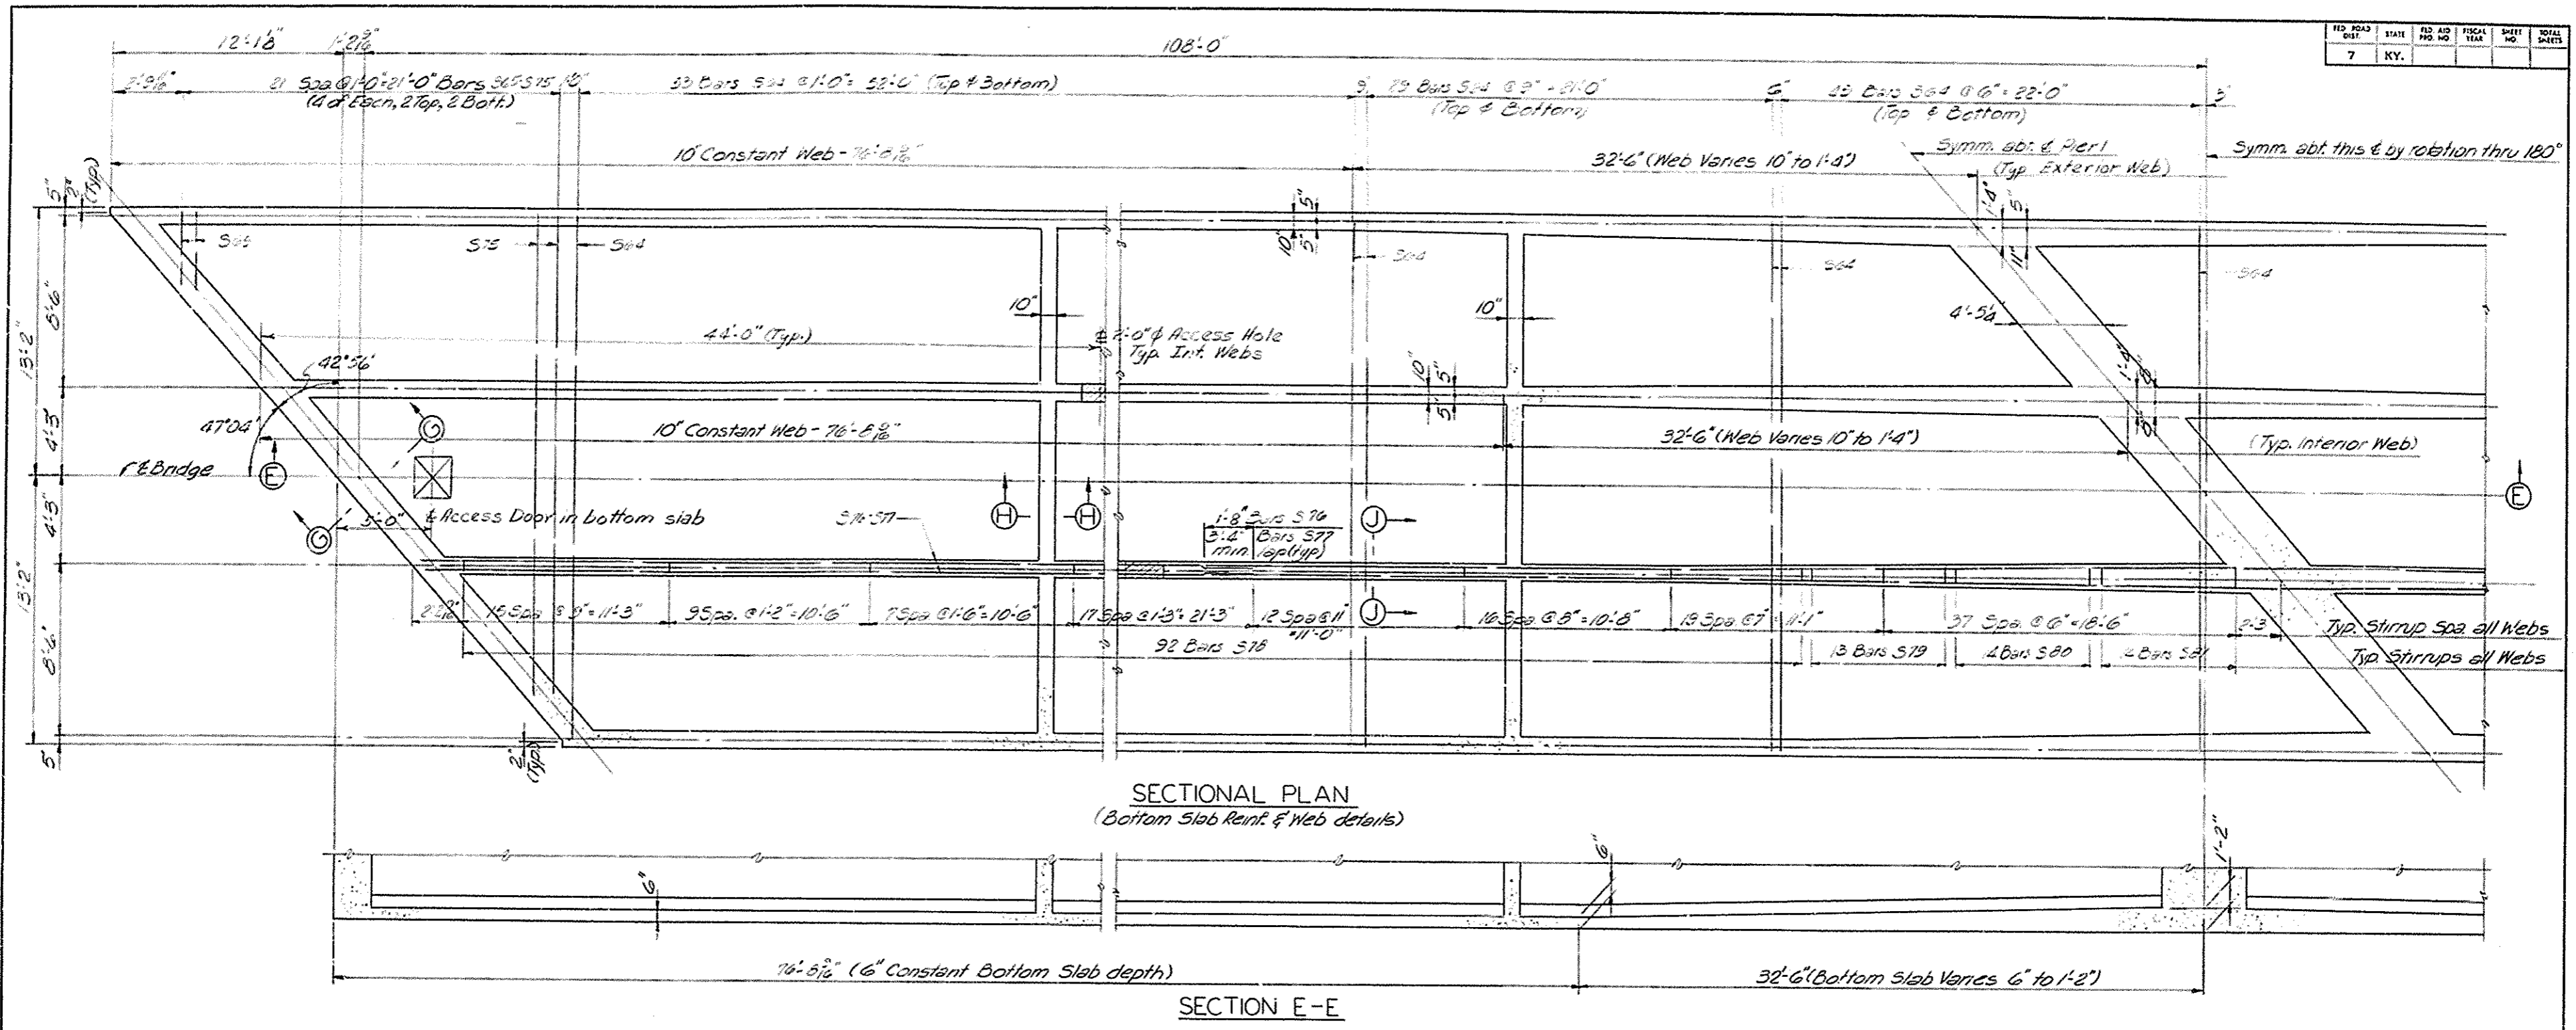 FED. ROAD DIST. STATE FED. AID PRO. NO. FISCAL YEAR SHEET NO. TOTAL SHEETS
7 KY.
12'-1⅛" 1'-2 9/16" 108'-0"
21 Spa. @ 1'-0"=21'-0" Bars S65-S75 1'-0" 53 Bars S64 @ 1'-0" = 52'-0" (Top & Bottom) 9" 29 Bars S64 @ 9" = 21'-0" 6" 45 Bars S64 @ 6" = 22'-0" 3"
(4 of Each, 2 Top, 2 Bott.) (Top & Bottom) (Top & Bottom)
10" Constant Web - 76'-8 9/16" 32'-6" (Web Varies 10" to 1'-4") Symm. abt. ℄ Pier 1 Symm. abt. this ℄ by rotation thru 180°
(Typ. Exterior Web)
5" 2" (Typ.)
5" 10" 5" 1'-4" 5" 11"
S65 S75 S64 S64 S64 S64
13'-2" 8'-6"
10" 10" 4'-5¼"
44'-0" (Typ.) 2'-0" ϕ Access Hole
Typ. Int. Webs
42°56' 10" 5" 5" 1'-4" 8" 8"
47°04' 4'-3" G
10" Constant Web - 76'-8 9/16" 32'-6" (Web Varies 10" to 1'-4") (Typ. Interior Web)
℄ Bridge E H H J E
4'-3" G 5'-0" ℄ Access Door in bottom slab S76-S77 1'-8" Bars S76
3'-4" Bars S77
min. lap (typ)
13'-2" 8'-6"
15 Spa @ 9" = 11'-3" 9 Spa. @ 1'-2" = 10'-6" 7 Spa @ 1'-6" = 10'-6" 17 Spa @ 1'-3" = 21'-3" 12 Spa @ 11" = 11'-0" J 16 Spa @ 8" = 10'-8" 19 Spa @ 7" = 11'-1" 37 Spa. @ 6" = 18'-6" 2'-3" Typ. Stirrup Spa. all Webs
92 Bars S78 13 Bars S79 14 Bars S80 Bars S81 Typ. Stirrups all Webs
5" 2" (Typ.)
SECTIONAL PLAN
(Bottom Slab Reinf. & Web details)
6" 6" 1'-2"
76'-8 9/16" (6" Constant Bottom Slab depth) 32'-6" (Bottom Slab Varies 6" to 1'-2")
SECTION E-E